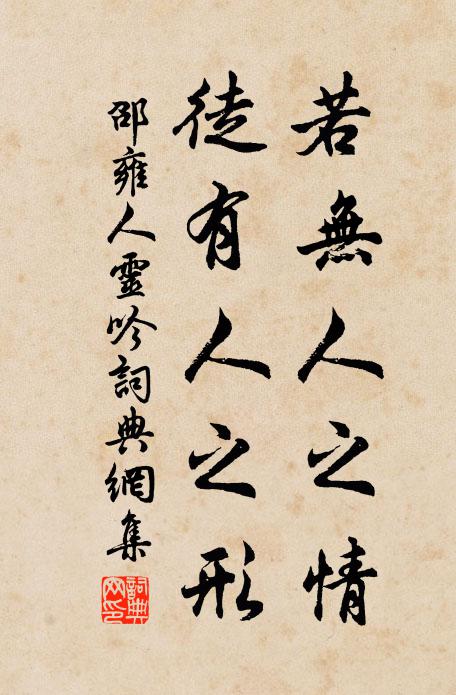 若無人之情
徒有人之形
邵雍人靈吟詞典網集
詞典网印